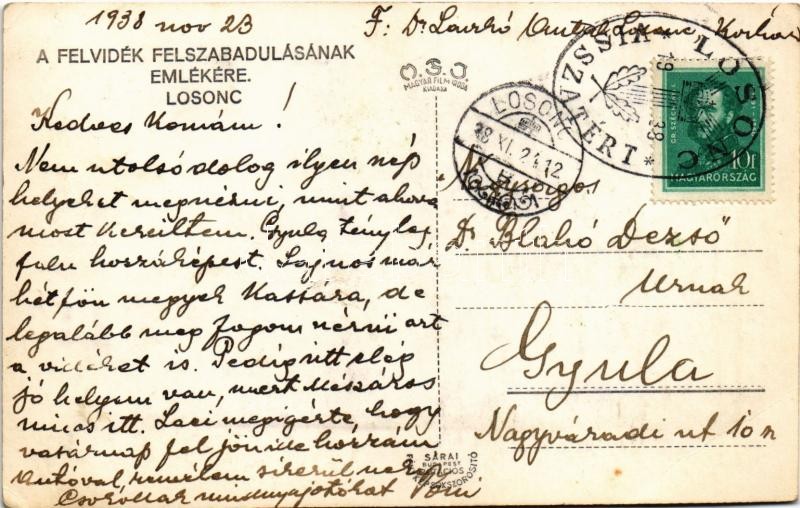 1938 nov 23
F: Dr László Antal Losonc
A FELVIDÉK FELSZABADULÁSÁNAK
EMLÉKÉRE.
LOSONC
MAGYAR FILM IRODA
KIADÁSA
LOSONC
38 XI. 24. 12
VISSZATÉRT * LOSONC *
1938
GR. SZÉCHENYI
10f
MAGYARORSZÁG
Kedves Komám!
Nem utolsó dolog ilyen szép
helyeket megnézni, mint ahova
most kerültem. Gyula tényleg
falu hozzáképest. Sajnos már
hétfőn megyek Kassára, de
legalább meg fogom nézni azt
a vidéket is. Pedig itt elég
jó helyem van, mert Mészáros
nincs itt. Laci megigérte, hogy
vasárnap feljön ide hozzám
autóval, remélem sikerül neki
Csókollak mindnyájotokat Tóni
Nagyságos
Dr Blahó Dezső
Urnak
Gyula
Nagyváradi ut 10 n
SÁRAI
BUDAPEST
FÉNYKÉPSOKSZOROSITÓ